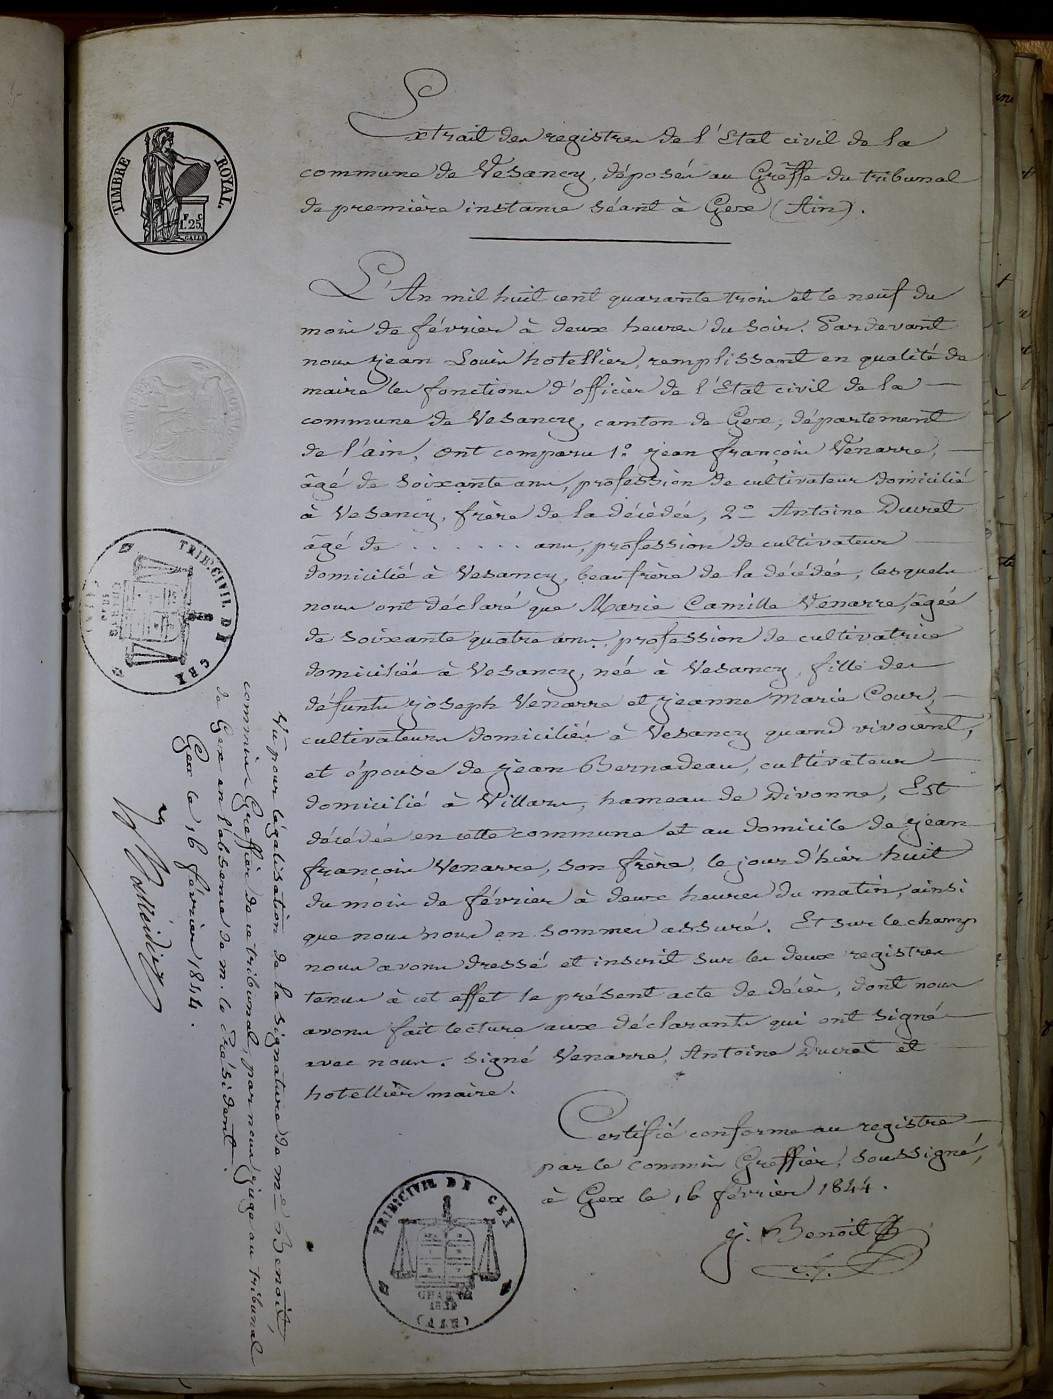 TIMBRE ROYAL.
1F. 25C
Extrait des registres de l'Etat civil de la
commune de Vesancy, déposés au Greffe du tribunal
de première instance séant à Gex (Ain).
L'An mil huit cent quarante trois et le neuf du
mois de février à deux heures du soir. Pardevant
nous jean Louis hotellier, remplissant en qualité de
maire les fonctions d'officier de l'Etat civil de la
commune de Vesancy, canton de Gex, département
de l'ain, ont comparu 1º jean françois Venarre,
âgé de soixante ans, profession de cultivateur domicilié
à Vesancy, frère de la décédée, 2º Antoine Ducret
âgé de . . . . . . ans, profession de cultivateur
domicilié à Vesancy, beaufrère de la décédée, lesquels
nous ont déclaré que Marie Camille Venarre, âgée
de soixante quatre ans, profession de cultivatrice
domiciliée à Vesancy, née à Vesancy, fille des
défunts joseph Venarre et jeanne Marie Cour,
cultivateurs domiciliés à Vesancy quand vivoient,
et épouse de jean Bernadeau, cultivateur
domicilié à Villars, hameau de Divonne, Est
décédée en cette commune et au domicile de jean
françois Venarre, son frère, le jour d'hier huit
du mois de février à deux heures du matin, ainsi
que nous nous en sommes assuré. Et sur le champ
nous avons dressé et inscrit sur les deux registres
tenus à cet effet le présent acte de décès, dont nous
avons fait lecture aux déclarants qui ont signé
avec nous. signé Venarre, Antoine Ducret et
hotellier maire.
Certifié conforme au registre
par le commis Greffier, soussigné,
à Gex le 16 février 1844.
j. Benoit
TRIB: CIVIL DE GEX
CHARTE
1830
(AIN)
TRIB: CIVIL DE GEX
Vu pour légalisation de la signature de me Benoit,
commis Greffier de ce tribunal, par nous, juge au tribunal
de Gex en l'absence de m. le Président.
Gex le 16 février 1844.